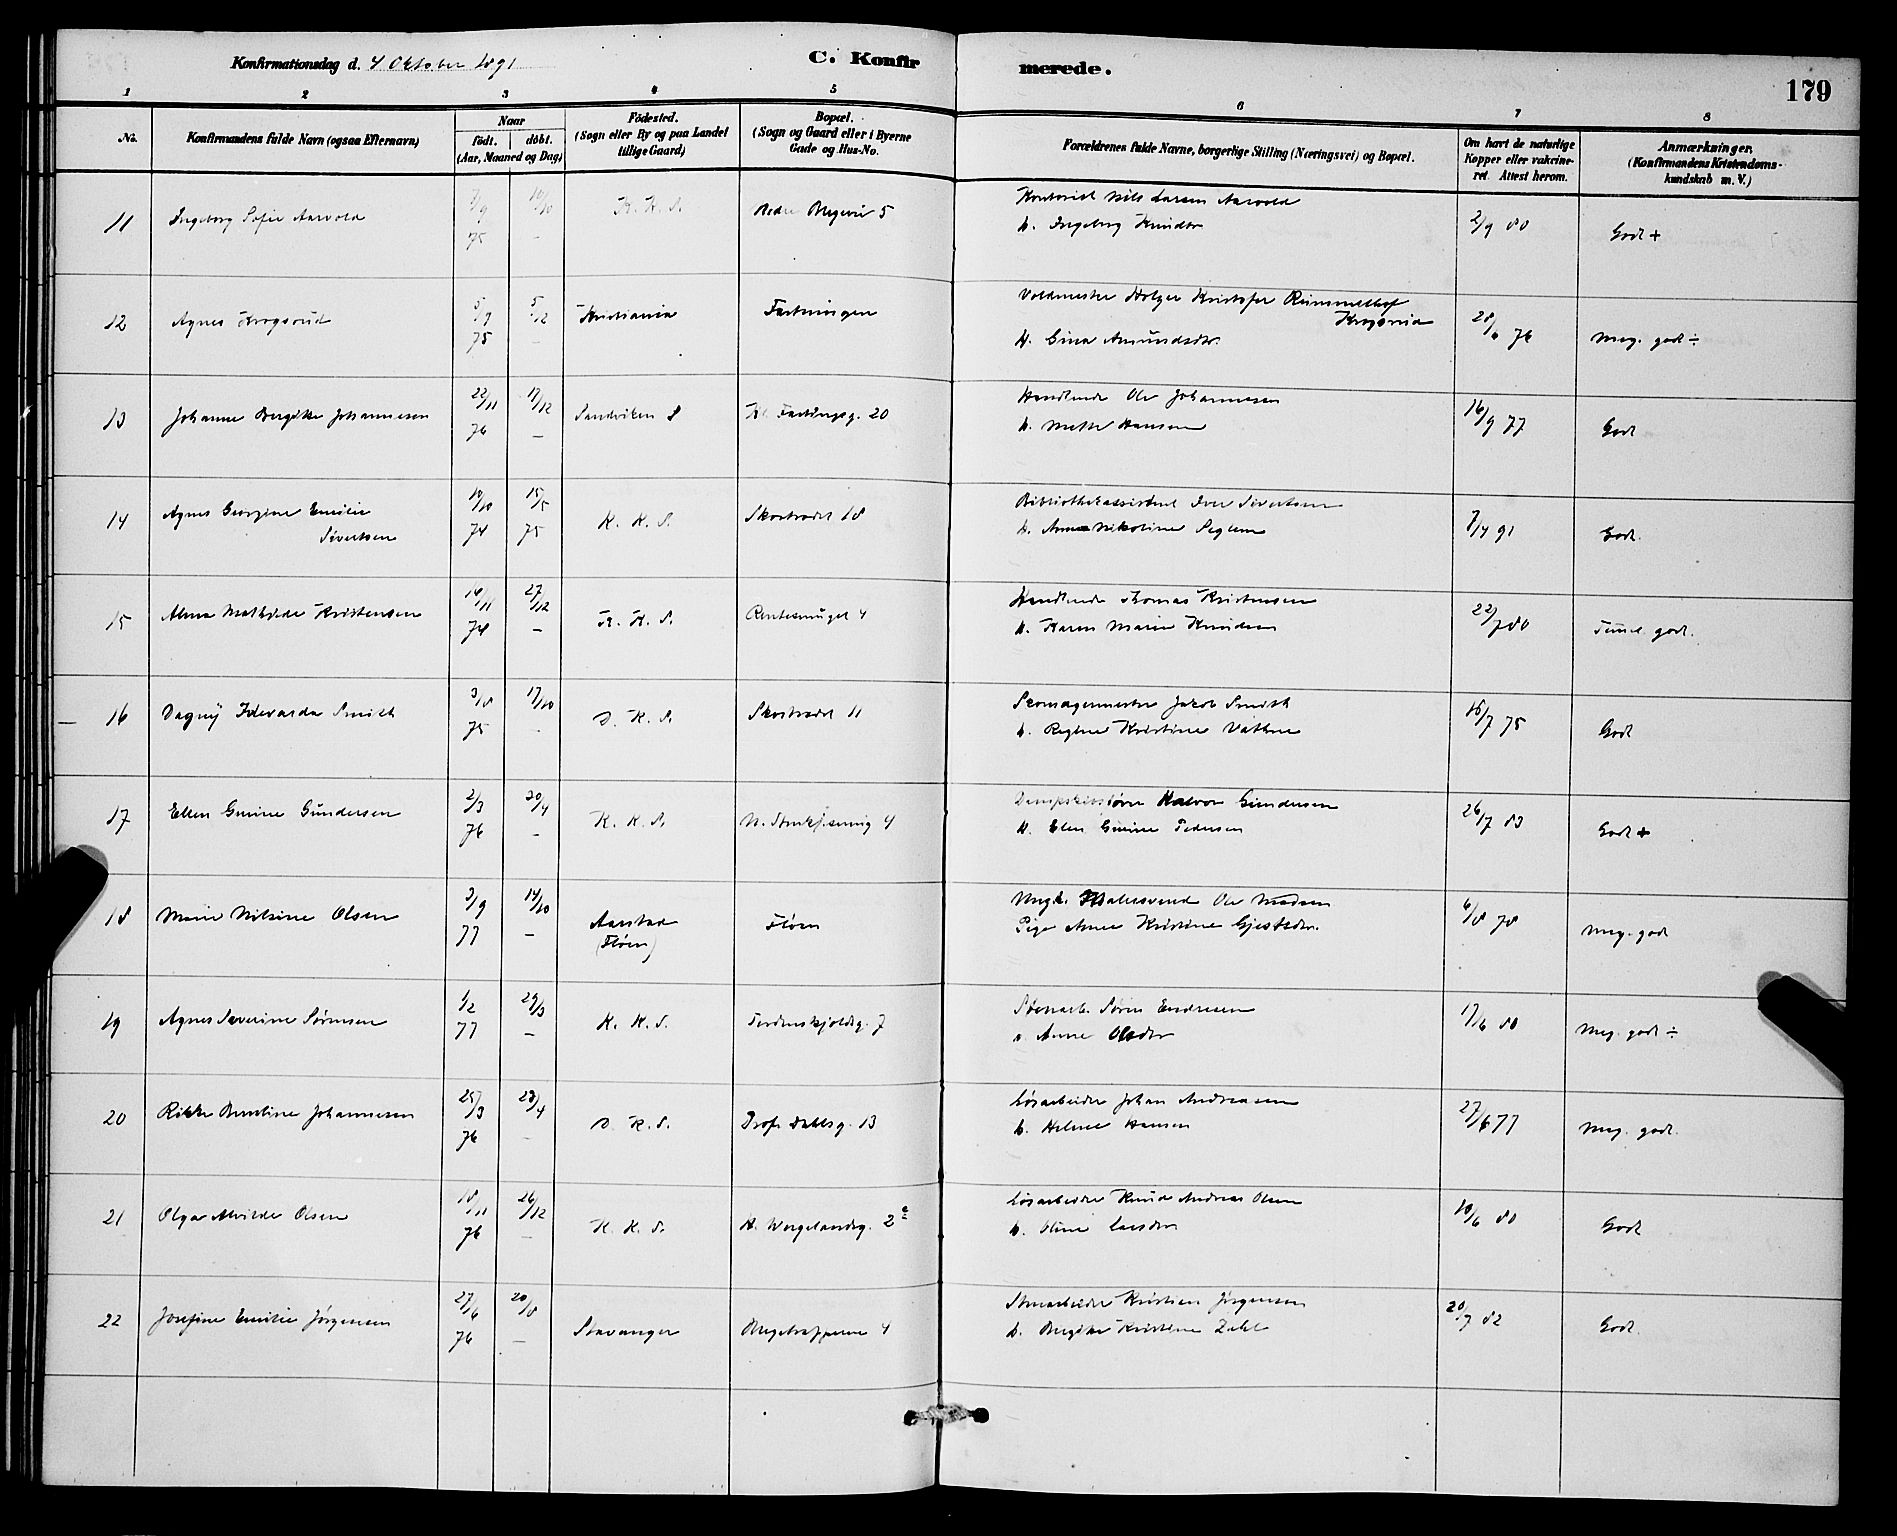 Konfirmationsdag d. 4 Oktober 1891
C. Konfirmerede.
179
1 2 3 4 5 6 7 8
No.
Konfirmandens fulde Navn (ogsaa Efternavn)
Naar
födt. döbt.
(Aar, Maaned og Dag)
Födested.
(Sogn eller By og paa Landet
tillige Gaard)
Bopæl.
(Sogn og Gaard eller i Byerne
Gade og Hus-No.
Forældrenes fulde Navne, borgerlige Stilling (Næringsvei) og Bopæl.
Om havt de naturlige
Kopper eller vakcine-
ret. Attest herom.
Anmærkninger.
(Konfirmandens Kristendoms-
kundskab m. V.)
11 Ingeborg Sofie Aarvold 7/9 75 10/10 - K. K. S. 5
Nils Larsen Aarvold
h. Ingeborg Knudtr 2/9 80 Godt +
12 Agnes Krogsrud 5/9 75 5/12 - Kristiania Festningen
Voldmester Holger Kristofer
Krogsrud
h. Gina Amundsdtr. 28/6 76 Meg. godt ÷
13 Johanne Bergitte Johannesen 22/11 76 17/12 - Sandviken S 20
Handlende Ole Johannesen
h. Mette Hansen 16/9 77 Godt
14 Agnes Georgine Emilie
Sivertsen 10/10 74 15/5 75 K. K. S. Skostrædet 18
Bibliothekassistent Iver Sivertsen
h. Anne Nikoline Seglem 7/7 91 Godt.
15 Alma Mathilde Kristensen 14/11 74 27/12 - K. K. S. 4
Handlende Thomas Kristensen
h. Karen Marie Knudsen 22/7 80 Teml. godt.
16 Dagny Edvarda Smith 3/8 75 17/10 - D. K. S. Skostrædet 11
Skomagermester Jakob Smith
h. Kristine Vathne 15/7 75 Godt
17 Ellen Gurine Gundersen 2/3 76 30/4 - K. K. S. 4
Halvor Gundersen
h. Elen Gurine Pedersen 26/7 83 Godt +
18 Marie Nilsine Olsen 3/9 77 14/10 - Aarstad
(Fløen) Fløen
Ungk. Malersvend Ole Madsen
Pige Anne Kristine Gjestsdtr. 6/8 78 Meg. godt
19 Agnes Severine Sörensen 1/2 77 29/3 - K. K. S. Tordenskjoldsg. 7
Sören Endresen
h. Anne Olsdtr 17/6 80 Meg. godt ÷
20 Rikke Berntine Johannesen 25/3 76 23/4 - D. K. S. Prof. Dahlsg. 13
Løsarbeider Johan Andreasen
h. Helene Hansen 27/6 77 Meg. godt.
21 Olga Alvilde Olsen 18/11 76 26/12 - K. K. S. H. Wergelandsg. 2a
Løsarbeider Knud Andreas Olsen
h. Oline Larsdtr 10/6 80 Godt
22 Josefine Emilie Jörgensen 27/6 76 20/8 - Stavanger 4
Kristian Jörgensen
h. Bergitte Kristine Zahl 20/7 82 Godt.